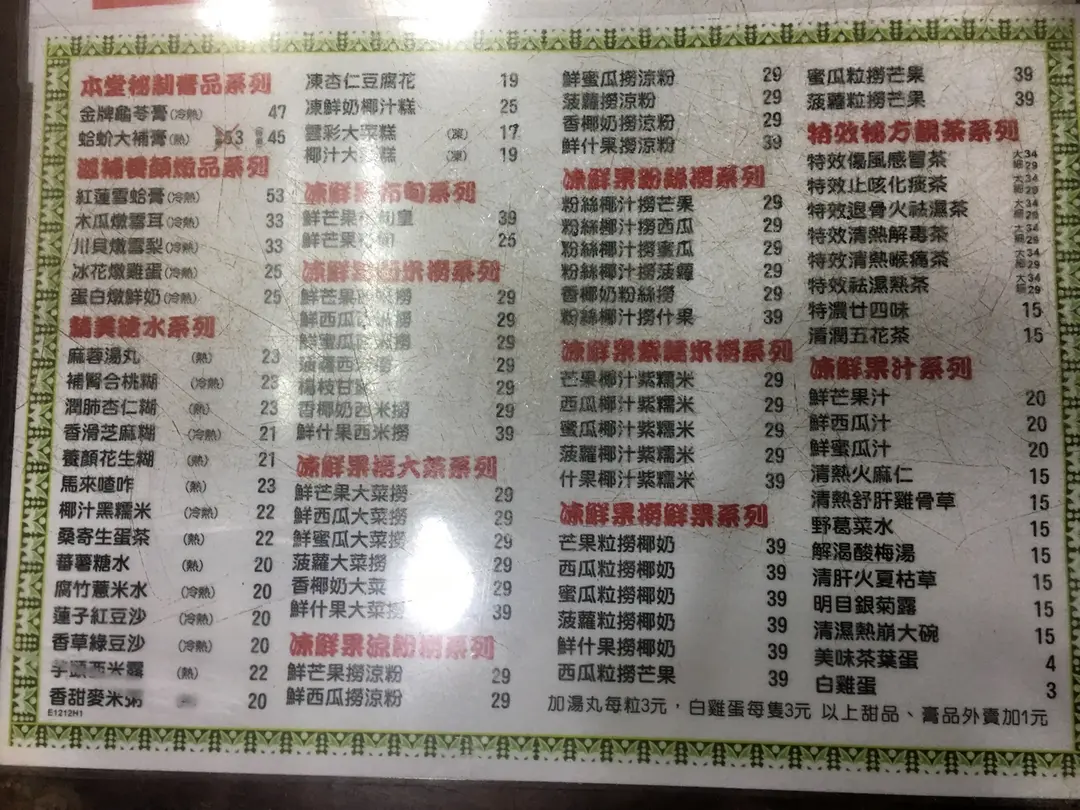 本堂秘制膏品系列
金牌龜苓膏(冷熱) 47
蛤蚧大補膏(熱) 53 45
滋補養顏燉品系列
紅蓮雪蛤膏(冷熱) 53
木瓜燉雪耳(冷熱) 33
川貝燉雪梨(冷熱) 33
冰花燉雞蛋(冷熱) 25
蛋白燉鮮奶(冷熱) 25
糖水系列
麻蓉湯丸 (熱) 23
補腎合桃糊 (冷熱) 23
潤肺杏仁糊 (熱) 23
香滑芝麻糊 (冷熱) 21
養顏花生糊 (熱) 21
馬來喳咋 (熱) 23
椰汁黑糯米 (冷熱) 22
桑寄生蛋茶 (熱) 22
蕃薯糖水 (熱) 20
腐竹薏米水 (冷熱) 20
蓮子紅豆沙 (冷熱) 20
香草綠豆沙 (冷熱) 20
芋頭西米露 (熱) 22
香甜麥米粥 20
E1212H1
凍杏仁豆腐花 19
凍鮮奶椰汁糕 25
雲彩大菜糕 (凍) 17
椰汁大菜糕 (凍) 19
凍鮮果布甸系列
鮮芒果布甸皇 39
鮮芒果布甸 25
凍鮮果西米撈系列
鮮芒果西米撈 29
鮮西瓜西米撈 29
鮮蜜瓜西米撈 29
菠蘿西米撈 29
楊枝甘露 29
香椰奶西米撈 29
鮮什果西米撈 39
凍鮮果撈大菜系列
鮮芒果大菜撈 29
鮮西瓜大菜撈 29
鮮蜜瓜大菜撈 29
菠蘿大菜撈 29
香椰奶大菜 29
鮮什果大菜撈 39
凍鮮果涼粉撈系列
鮮芒果撈涼粉 29
鮮西瓜撈涼粉 29
鮮蜜瓜撈涼粉 29
菠蘿撈涼粉 29
香椰奶撈涼粉 29
鮮什果撈涼粉 39
凍鮮果粉絲撈系列
粉絲椰汁撈芒果 29
粉絲椰汁撈西瓜 29
粉絲椰汁撈蜜瓜 29
粉絲椰汁撈菠蘿 29
香椰奶粉絲撈 29
粉絲椰汁撈什果 39
凍鮮果紫糯米撈系列
芒果椰汁紫糯米 29
西瓜椰汁紫糯米 29
蜜瓜椰汁紫糯米 29
菠蘿椰汁紫糯米 29
什果椰汁紫糯米 39
凍鮮果撈鮮果系列
芒果粒撈椰奶 39
西瓜粒撈椰奶 39
蜜瓜粒撈椰奶 39
菠蘿粒撈椰奶 39
鮮什果撈椰奶 39
西瓜粒撈芒果 39
蜜瓜粒撈芒果 39
菠蘿粒撈芒果 39
特效秘方靚茶系列
特效傷風感冒茶 大34 細29
特效止咳化痰茶 大34 細29
特效退骨火祛濕茶 大34 細29
特效清熱解毒茶 大34 細29
特效清熱喉痛茶 大34 細29
特效祛濕熱茶 大34 細29
特濃廿四味 15
清潤五花茶 15
凍鮮果汁系列
鮮芒果汁 20
鮮西瓜汁 20
鮮蜜瓜汁 20
清熱火麻仁 15
清熱舒肝雞骨草 15
野葛菜水 15
解渴酸梅湯 15
清肝火夏枯草 15
明目銀菊露 15
清濕熱崩大碗 15
美味茶葉蛋 4
白雞蛋 3
加湯丸每粒3元，白雞蛋每隻3元 以上甜品、膏品外賣加1元